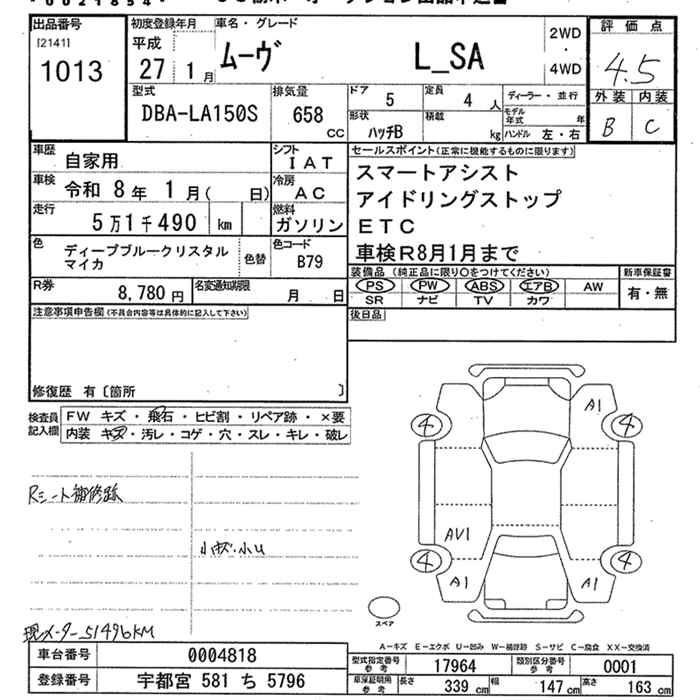 出品番号
[2141]
1013
初度登録年月
平成
27 1月
車名・グレード
ムーヴ L_SA
2WD
・
4WD
評価点
4.5
外装 内装
B C
型式
DBA-LA150S
排気量
658
cc
ドア
5
定員
4 人
形状
ハッチB
積載
kg
ディーラー・並行
モデル年式
年
ハンドル 左・右
車歴
自家用
シフト
IAT
車検
令和 8年 1月( 日)
冷房
AC
走行
5万1千490 km
燃料
ガソリン
色
ディープブルークリスタル
マイカ
色替
色コード
B79
R券
8,780円
名変通知期限
月 日
セールスポイント(正常に機能するものに限ります)
スマートアシスト
アイドリングストップ
ETC
車検R8月1月まで
装備品(純正品に限り○をつけてください)
PS PW ABS エアB AW
SR ナビ TV カワ
新車保証書
有・無
後日品
注意事項申告欄(不具合内容等は具体的に記入して下さい)
修復歴 有〔箇所 〕
検査員記入欄
FW キズ・飛石・ヒビ割・リペア跡・×要
内装 キズ・汚レ・コゲ・穴・スレ・キレ・破レ
Rシート補修跡
小キズ・小U
現メーター51496KM
A1
4
4
AV1
4
4
A1
A1
スペア
A-キズ E-エクボ U-凹み W-補修跡 S-サビ C-腐食 XX-交換済
車台番号
0004818
登録番号
宇都宮 581 ち 5796
型式指定番号
参考
17964
類別区分番号
参考
0001
車庫証明用
参考
長さ
339 cm
幅
147 cm
高さ
163 cm